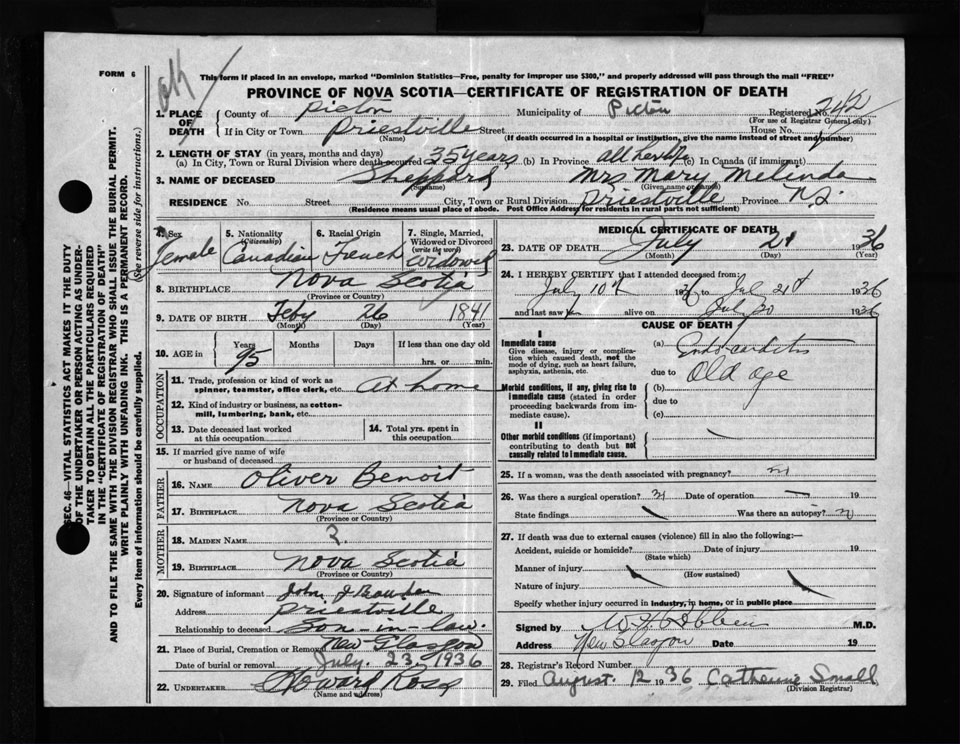 FORM 6
ok
This form if placed in an envelope, marked "Dominion Statistics—Free, penalty for improper use $300," and properly addressed will pass through the mail "FREE"
PROVINCE OF NOVA SCOTIA—CERTIFICATE OF REGISTRATION OF DEATH
1. PLACE OF DEATH County of Pictou Municipality of Pictou Registered No. 242
(For use of Registrar General only)
If in City or Town Priestville Street House No.
(Name) (If death occurred in a hospital or institution, give the name instead of street and number)
2. LENGTH OF STAY (in years, months and days)
(a) In City, Town or Rural Division where death occurred 35 years (b) In Province all her life (c) In Canada (if immigrant)
3. NAME OF DECEASED Sheppard Mrs Mary Melinda
(Surname) (Given name or names)
RESIDENCE No. Street City, Town or Rural Division Priestville Province N.S.
(Residence means usual place of abode. Post Office Address for residents in rural parts not sufficient)
4. Sex Female
5. Nationality (Citizenship) Canadian
6. Racial Origin French
7. Single, Married, Widowed or Divorced (write the word) Widowed
8. BIRTHPLACE Nova Scotia
(Province or Country)
9. DATE OF BIRTH Feby 26 1841
(Month) (Day) (Year)
10. AGE in Years Months Days If less than one day old
95 hrs. or min.
OCCUPATION
11. Trade, profession or kind of work as spinner, teamster, office clerk, etc. At home
12. Kind of industry or business, as cotton-mill, lumbering, bank, etc.
13. Date deceased last worked at this occupation
14. Total yrs. spent in this occupation
15. If married give name of wife or husband of deceased
FATHER
16. NAME Oliver Benoit
17. BIRTHPLACE Nova Scotia
(Province or Country)
MOTHER
18. MAIDEN NAME ?
19. BIRTHPLACE Nova Scotia
(Province or Country)
20. Signature of informant John J
Address Priestville
Relationship to deceased Son-in-law.
21. Place of Burial, Cremation or Removal New Glasgow
Date of burial or removal July. 23, 1936
22. UNDERTAKER Howard Ross
(Name and address)
MEDICAL CERTIFICATE OF DEATH
23. DATE OF DEATH July 21 1936
(Month) (Day) (Year)
24. I HEREBY CERTIFY that I attended deceased from:
July 10th 1936 to July 21st 1936
and last saw alive on July 20 1936
CAUSE OF DEATH
I
Immediate cause
Give disease, injury or complication which caused death, not the mode of dying, such as heart failure, asphyxia, asthenia, etc.
(a) Endocarditis
due to Old age
Morbid conditions, if any, giving rise to immediate cause (stated in order proceeding backwards from immediate cause).
(b)
due to
(c)
II
Other morbid conditions (if important) contributing to death but not causally related to immediate cause.
25. If a woman, was the death associated with pregnancy?
26. Was there a surgical operation? Date of operation — 19
State findings Was there an autopsy?
27. If death was due to external causes (violence) fill in also the following:—
Accident, suicide or homicide? Date of injury 19
(State which)
Manner of injury
(How sustained)
Nature of injury
Specify whether injury occurred in industry, in home, or in public place
Signed by M.D.
Address New Glasgow Date 19
28. Registrar's Record Number
29. Filed August 12 1936 Catherine Small
(Division Registrar)
SEC. 46—VITAL STATISTICS ACT MAKES IT THE DUTY
OF THE UNDERTAKER OR PERSON ACTING AS UNDER-
TAKER TO OBTAIN ALL THE PARTICULARS REQUIRED
IN THE "CERTIFICATE OF REGISTRATION OF DEATH"
AND TO FILE THE SAME WITH THE DIVISION REGISTRAR WHO SHALL ISSUE THE BURIAL PERMIT.
WRITE PLAINLY WITH UNFADING INK. THIS IS A PERMANENT RECORD.
Every item of information should be carefully supplied. (See reverse side for instructions.)